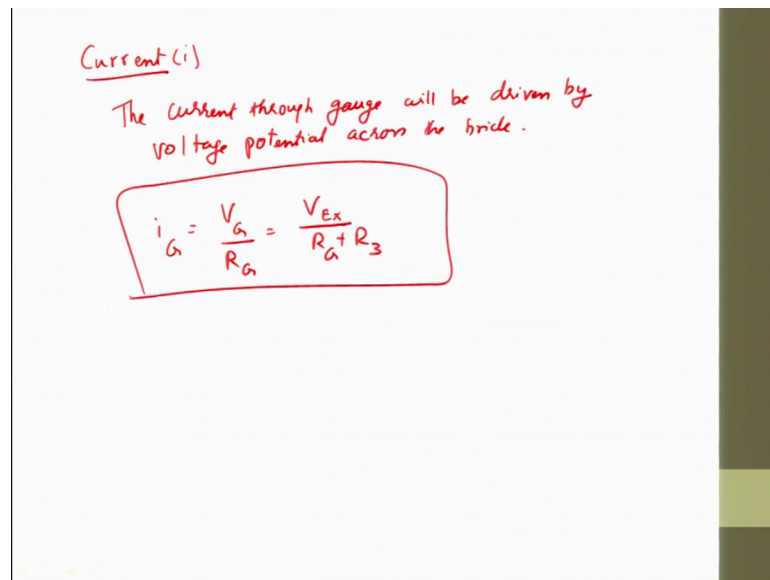 Current (i)
The current through gauge will be driven by
voltage potential across the brick.
i_G = V_G / R_G = V_Ex / (R_G + R_3)